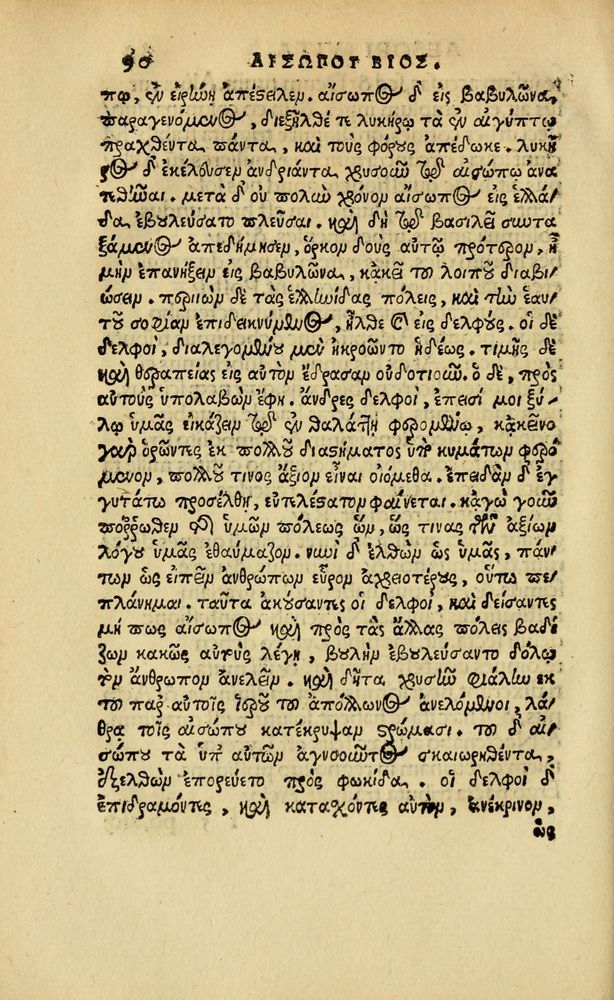 90 ΑΙΣΩΠΟΥ ΒΙΟΣ.
πῳ, ἐν εἰρήνῃ ἀπέστειλεν. αἴσωπος δ' εἰς βαβυλῶνα
παραγενόμενος, διεξῆλθέ τε λυκήρῳ τὰ ἐν αἰγύπτῳ
πραχθέντα πάντα, καὶ τοὺς φόρους ἀπέδωκε. λυκῆ
ρος δ' ἐκέλευσεν ἀνδριάντα χρυσοῦν τῷ αἰσώπῳ ἀνα
τεθῆναι. μετὰ δ' οὐ πολὺν χρόνον αἴσωπος εἰς ἑλλά/
δα ἐβουλεύσατο πλεῦσαι. καὶ δὴ τῷ βασιλεῖ συντα
ξάμενος ἀπεδήμησεν, ὅρκον δοὺς αὐτῷ πρότερον, ἦ
μὴν ἐπανήξειν εἰς βαβυλῶνα, κἀκεῖ τοῦ λοιποῦ διαβι/
ώσειν. περιϊὼν δὲ τὰς ἑλληνίδας πόλεις, καὶ τὴν ἑαυ/
τοῦ σοφίαν ἐπιδεικνύμενος, ἦλθε καὶ εἰς δελφούς. οἱ δὲ
δελφοὶ, διαλεγομένου μὲν ἠκροῶντο ἡδέως. τιμῆς δὲ
καὶ θεραπείας εἰς αὐτὸν ἔδρασαν οὐδοτιοῦν. ὁ δὲ, πρὸς
αὐτοὺς ὑπολαβὼν ἔφη. ἄνδρες δελφοὶ, ἔπεισί μοι ξύ/
λῳ ὑμᾶς εἰκάζειν τῷ ἐν θαλάττῃ φερομένῳ, κἀκεῖνο
γὰρ ὁρῶντες ἐκ πολλοῦ διαστήματος ὑπὸ κυμάτων φερό
μενον, πολλοῦ τινος ἄξιον εἶναι οἰόμεθα. ἐπειδὰν δ' ἐγ
γυτάτω προσέλθῃ, εὐτελέστατον φαίνεται. κἀγὼ γοῦν
πόρρωθεν τῆς ὑμῶν πόλεως ὢν, ὥς τινας τῶν ἀξίων
λόγου ὑμᾶς ἐθαύμαζον. νυνὶ δ' ἐλθὼν ὡς ὑμᾶς, πάν/
των ὡς εἰπεῖν ἀνθρώπων εὗρον ἀχρειοτέρους, οὕτω πε
πλάνημαι. ταῦτα ἀκούσαντες οἱ δελφοὶ, καὶ δείσαντες
μή πως αἴσωπος καὶ πρὸς τὰς ἄλλας πόλεις βαδί
ζων κακῶς αὐτοὺς λέγῃ, βουλὴν ἐβουλεύσαντο δόλῳ
τὸν ἄνθρωπον ἀνελεῖν. καὶ δῆτα χρυσῆν φιάλην ἐκ
τοῦ παρ' αὐτοῖς ἱεροῦ τοῦ ἀπόλλωνος ἀνελόμενοι, λά/
θρα τοῖς αἰσώπου κατέκρυψαν στρώμασι. τοῦ δ' αἰ
σώπου τὰ ὑπ' αὐτῶν ἀγνοοῦντος σκαιωρηθέντα,
ἐξελθὼν ἐπορεύετο πρὸς φωκίδα. οἱ δελφοὶ δ'
ἐπιδραμόντες, καὶ κατασχόντες αὐτὸν, ἀνέκρινον,
ὡς